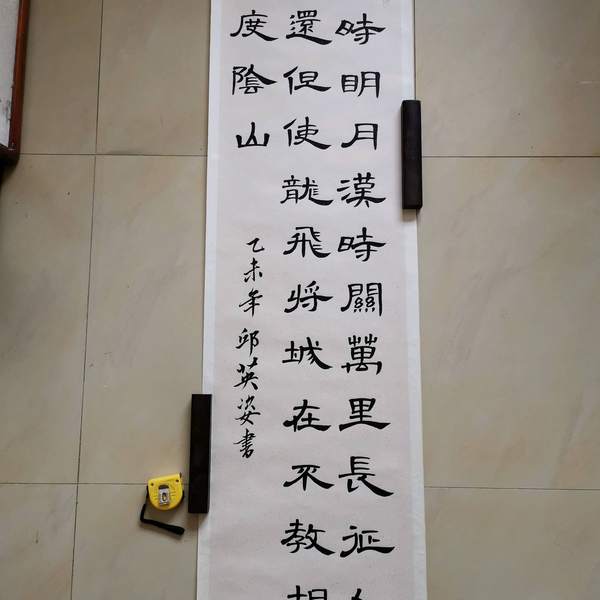 時明月漢時關萬里長征
還但使龍飛將城在不教
度陰山
乙未年邱英姿書